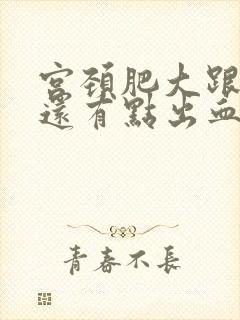 宮頚肥大跟
還有點出血
青春不長